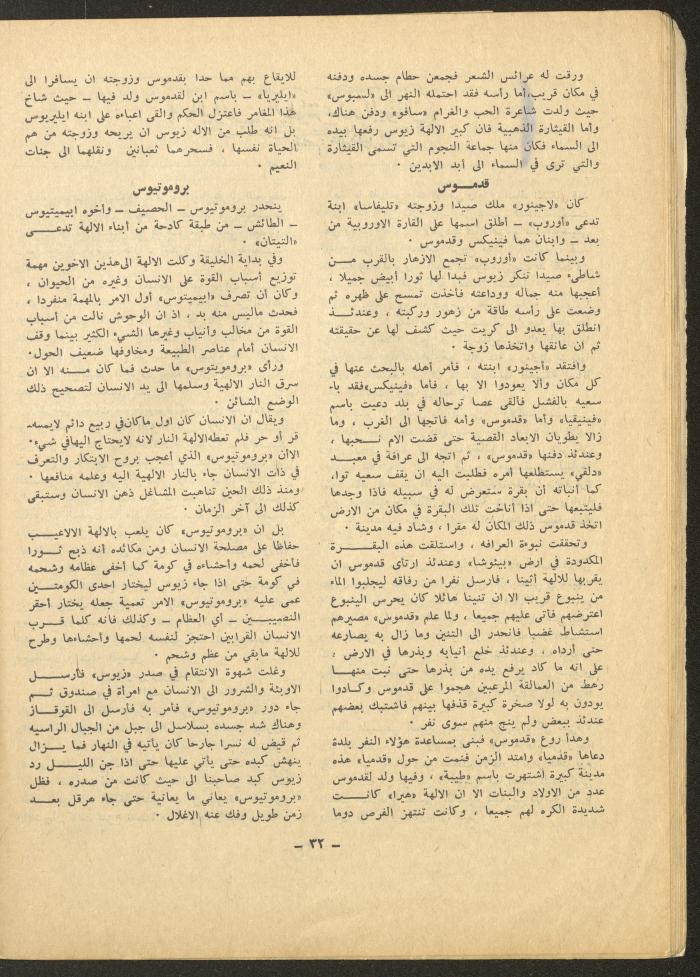 ورقت له عرائس الشعر فجمعن حطام جسده ودفنه
في مكان قريب، أما رأسه فقد احتمله النهر الى «لسبوس»
حيث ولدت شاعرة الحب والغرام «سافو» ودفن هناك،
وأما القيثارة الذهبية فان كبير الالهة زيوس رفعها بيده
الى السماء فكان منها جماعة النجوم التي تسمى القيثارة
والتي ترى في السماء الى أبد الابدين ·
قدمــوس
كان «لاجينور» ملك صيدا وزوجته «تليفاسا» ابنة
تدعى «أوروب» ـ أطلق اسمها على القارة الاوروبية من
بعد ـ وابنان هما فينيكس وقدموس ·
وبينما كانت «أوروب» تجمع الازهار بالقرب مــن
شاطىء صيدا تنكر زيوس فبدا لها ثورا أبيض جميلا ،
أعجبها منه جماله ووداعته فأخذت تمسح على ظهره ثم
وضعت على رأسه طاقة من زهور وركبته ، وعندئــذ
انطلق بها يعدو الى كريت حيث كشف لها عن حقيقته
ثم ان عانقها واتخذها زوجة ·
وافتقد «أجينور» ابنته ، فأمر أهله بالبحث عنها في
كل مكان وألا يعودوا الا بها ، فأما «فينيكس»فقد باء
سعيه بالفشل فألقى عصا ترحاله في بلد دعيت باسم
«فينيقيا» وأما «قدموس» وأمه فاتجها الى الغرب ، وما
زالا يطويان الابعاد القصية حتى قضت الام نــحبها ،
وعندئذ دفنها «قدموس» ، ثم اتجه الى عرافة في معبــد
«دلفي» يستطلعها أمره فطلبت اليه ان يقف سعيه توا،
كما أنبأته أن بقرة ستعرض له في سبيله فاذا وجدها
فليتبعها حتى اذا أناخت تلك البقرة في مكان من الارض
اتخذ قدموس ذلك المكان له مقرا ، وشاد فيه مدينة ·
وتحققت نبوءة العرافه ، واستلقت هذه البقــرة
المكدودة في ارض «بيئوشا» وعندئذ ارتأى قدموس ان
يقربها للالهة أثينا ، فارسل نفرا من رفاقه ليجلبوا الماء
من ينبوع قريب الا ان تنينا هائلا كان يحرس الينبوع
اعترضهم فأتى عليهم جميعا ، ولما علم «قدموس» مصيرهم
استشاط غضبا فانحدر الى التنين وما زال به يصارعه
حتى أرداه ، وعندئذ خلع أنيابه وبذرها في الارض ؛
على انه ما كاد يرفع يده من بذرها حتى نبت منهــا
رهط من العمالقة المرعبين هجموا على قدموس وكــادوا
يودون به لولا صخرة كبيرة قذفها بينهم فاشتبك بعضهم
عندئذ ببعض ولم ينج منهم سوى نفر ·
وهدأ روع «قدموس» فبنى بمساعدة هؤلاء النفر بلدة
دعاها «قدميا» وامتد الزمن فنمت من حول «قدميا» هذه
مدينة كبيرة اشتهرت باسم «طيبة» ، وفيها ولد لقدموس
عدد من الاولاد والبنات الا ان الالهة «هيرا» كانــت
شديدة الكره لهم جميعا ، وكانت تنتهز الفرص دوما
للايقاع بهم مما حدا بقدموس وزوجته ان يسافرا الى
«ايليريا» ـ باسم ابن لقدموس ولد فيها ـ حيث شاخ
هذا المغامر فاعتزل الحكم والقى اعباءه على ابنه ايليريوس
بل انه طلب من الاله زيوس ان يريحه وزوجته من هم
الحياة نفسها ، فسحرهما ثعبانين ونقلهما الى جنات
النعيم ·
بروموتيوس
ينحدر بروموتيوس ـ الحصيف ـ وأخوه ابيميتيوس
ـ الطائش ـ من طبقة كادحة من أبناء الالهة تدعــى
«التيتان» ·
وفي بداية الخليقة وكلت الالهة الىهذين الاخوين مهمة
توزيع أسباب القوة على الانسان وغيره من الحيوان ،
وكان أن تصرف «ابيميتوس» أول الامر بالمهمة منفردا ،
فحدث ماليس منه بد ، اذ ان الوحوش نالت من أسباب
القوة من مخالب وأنياب وغيرها الشيء الكثير بينما وقف
الانسان أمام عناصر الطبيعة ومخاوفها ضعيف الحول·
ورأى «بروميتوس» ما حدث فما كان منــه الا ان
سرق النار الالهية وسلمها الى يد الانسان لتصحيح ذلك
الوضع الشائن ·
ويقال ان الانسان كان اول ماكان في ربيع دائم لايمسه
قر أو حر فلم تعطه الالهة النار لانه لايحتاج اليهافي شيء·
الاأن «بروموتيوس» الذي أعجب بروح الابتكار والتعرف
في ذات الانسان جاء بالنار الالهية اليه وعلمه منافعها ·
ومنذ ذلك الحين تناهبت المشاغل ذهن الانسان وستبقى
كذلك الى آخر الزمان ·
بل ان «بروموتيوس» كان يلعب بالالهة الالاعيــب
حفاظا على مصلحة الانسان ومن مكائده أنه ذبح ثــورا
فأخفى لحمه وأحشاءه في كومة كما أخفى عظامه وشحمه
في كومة حتى اذا جاء زيوس ليختار احدى الكومتــين
عمى عليه «بروموتيوس» الامر تعمية جعله يختار أحقر
النصيبــين ـ أي العظام ـ وكذلك فانه كلما قــرب
الانسان القرابين احتجز لنفسه لحمها وأحشاءها وطرح
للالهة مابقي من عظم وشحم ·
وغلت شهوة الانتقام في صدر «زيوس» فأرســل
الاوبئة والشرور الى الانسان مع امرأة في صندوق ثــم
جاء دور «بروموتيوس» فأمر به فارسل الى القوقــاز
وهناك شد جسده بسلاسل الى جبل من الجبال الراسيه
ثم قيض له نسرا جارحا كان يأتيه في النهار فما يــزال
ينهش كبده حتى يأتي عليها حتى اذا جن الليــل رد
زيوس كبد صاحبنا الى حيث كانت من صدره ، فظل
«بروموتيوس» يعاني ما يعانية حتى جاء هرقل بعــد
زمن طويل وفك عنه الاغلال ·
ـ ٣٢ ـ